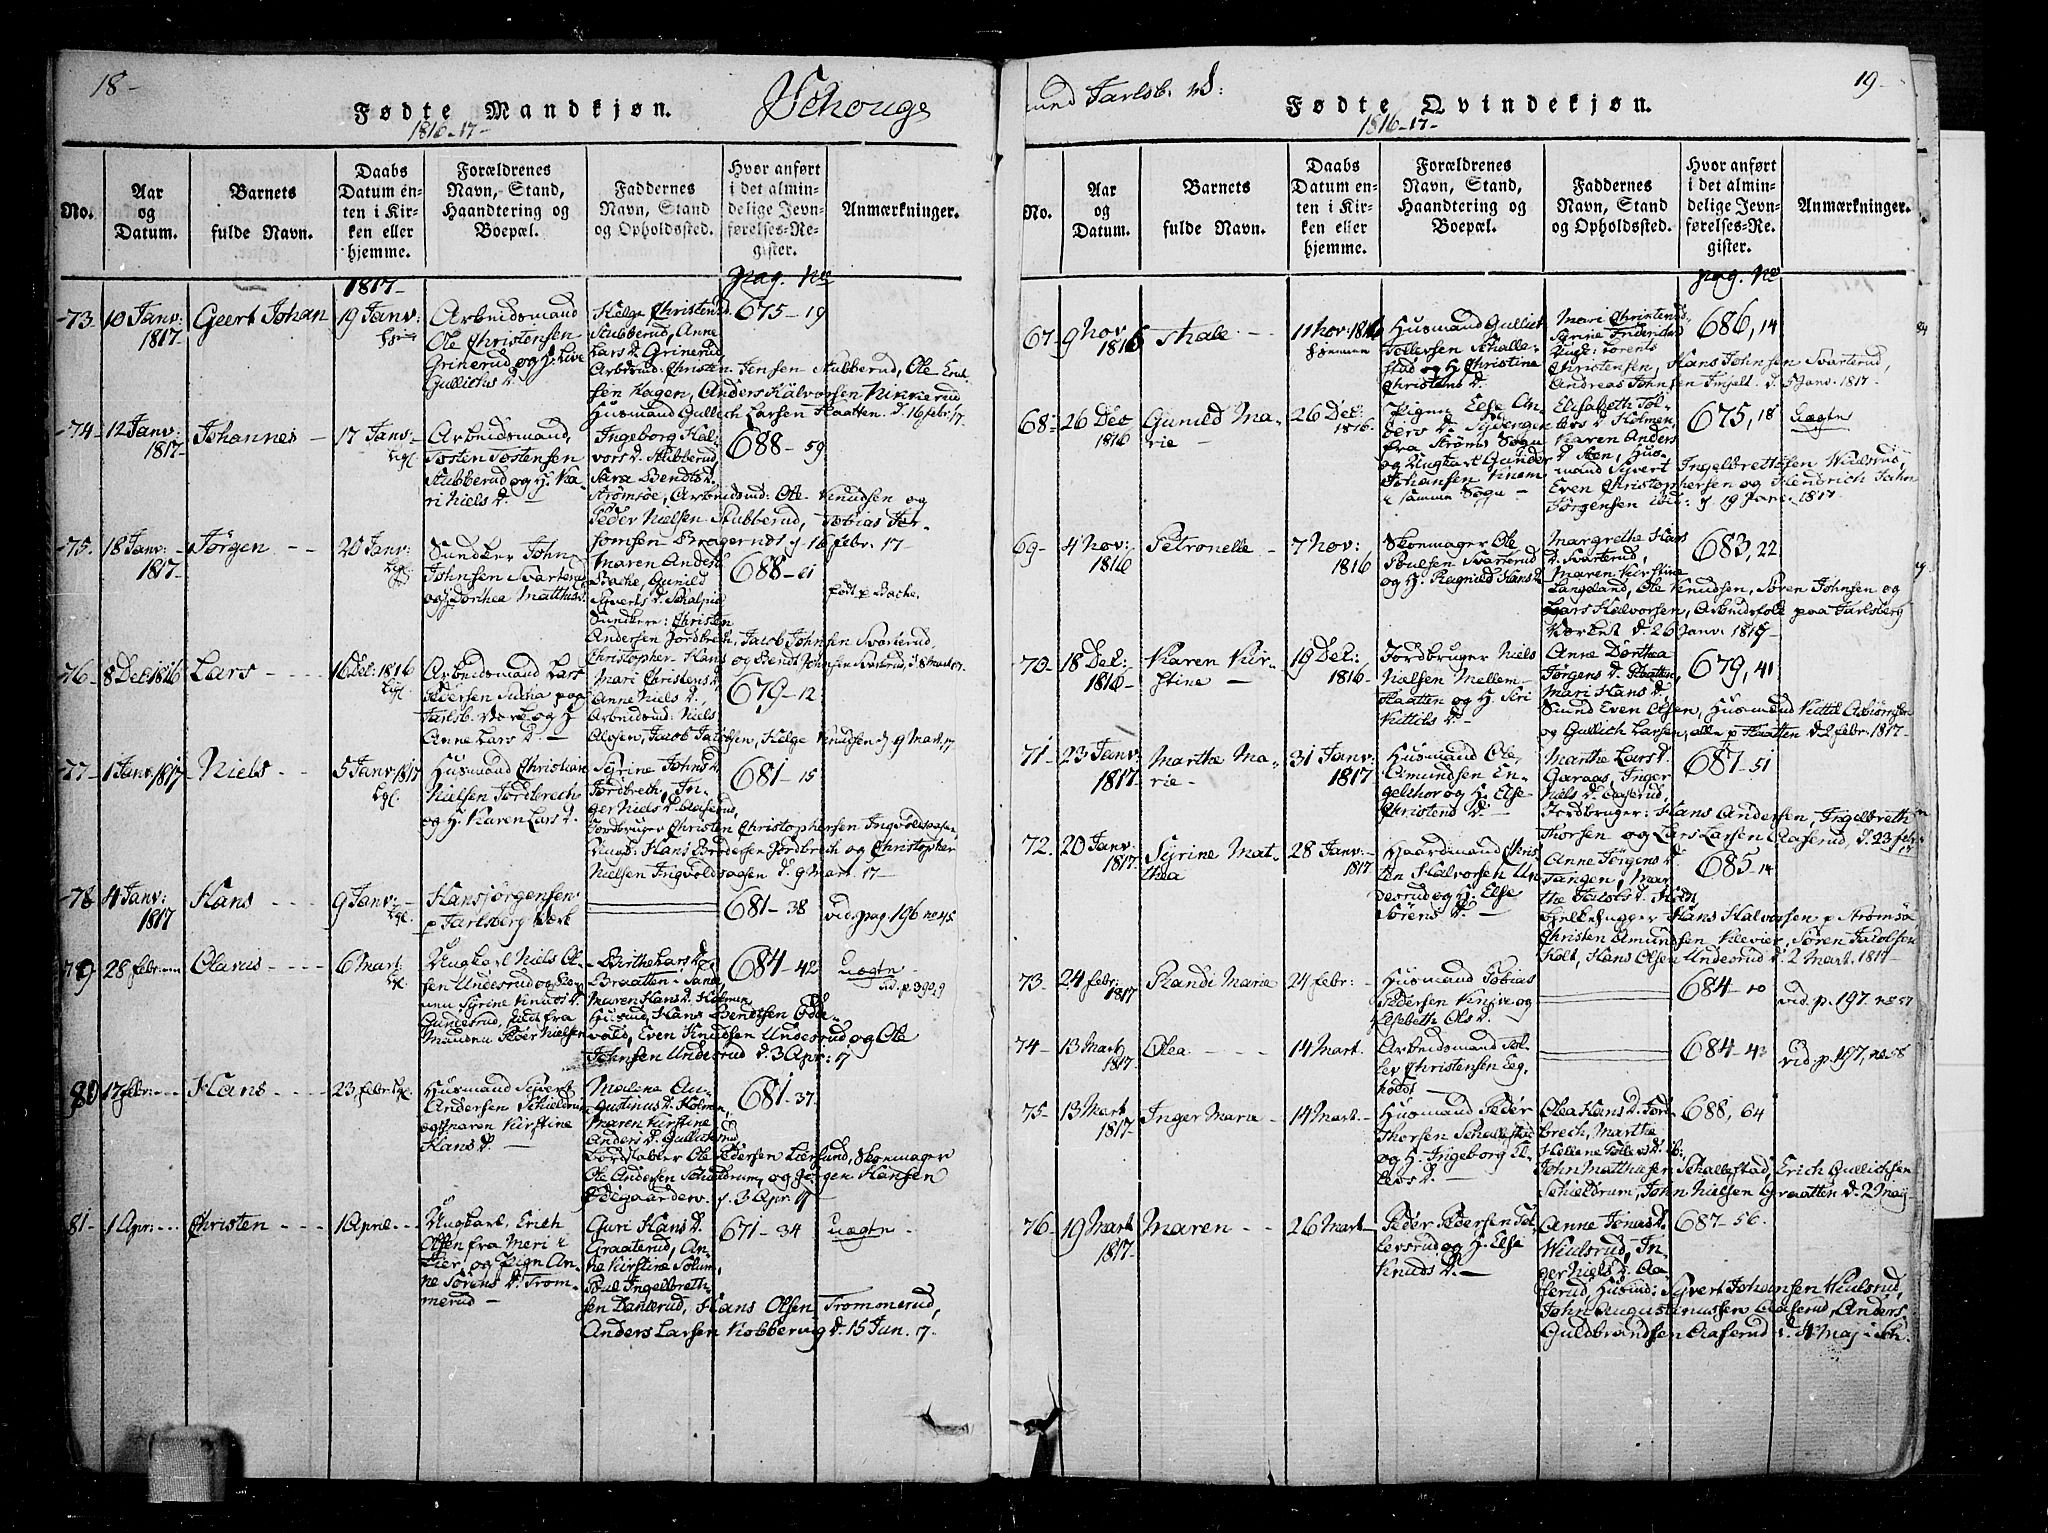 18-
Fødte Mandkjøn.
Schouge
1816-17-
No.
Aar
og
Datum.
Barnets
fulde Navn.
Daabs
Datum en-
ten i Kir-
ken eller
hjemme.
Forældrenes
Navn, Stand,
Haandtering og
Boepæl.
Faddernes
Navn, Stand
og Opholdssted.
Hvor anført
i det almin-
delige Jevn-
førelses-Re-
gister.
Anmærkninger.
pag. No
1817-
73
10 Janv:
1817-
Geert Johan
19 Janv:
Arbeidsmand
Ole Christensen
Grinerud og H. Live
Gullichs D.
Helge Christensd.
Stubberud, Anne
Lars D. Grinerud,
Arbersud: Christen Jensen Stubberud, Ole Erik-
sen Hagen, Anders Halvorsen
Husmand Gullich Larsen Plaatten. d. 16 febr. 17.
675-19
74-
12 Janv:
1817-
Johannes-
17 Janv-
Arbeidsmand,
Tosten Tostensen
Stubberud og H. Ka-
ri Niels D.-
Ingeborg Hal-
vors D. Stubberud,
Sara Bendts D.
Strømsøe, Arbeidsmd: Ole Knudsen og
Peder Nielsen Stubberud, Tobias
Bragernes, 16 febr. 17-
688-59
75.
18 Janv:
1817-
Jørgen
20 Janv:
John
Johnsen Svarterud
og H. Dorthea Matthis D.
Maren Anders D.
Bache, Gunild
Syverts D.
Christen
Andersen Jordbrech, Jacob Johnsen Svarterud,
Christopher Hans og Bendt Johnsen Svarterud, d. 8 Mart. 17.
688-61
født p. Bache.
76-
8 Dec: 1816
Lars
16 Dec: 1816
Arbeidsmand Lars
Pedersen paa
Jarlsb. Værk og H.
Anne Lars D.-
Mari Christens D.
Anne Niels D.,
Arbeidsmd: Niels
Olsen, Jacob Jacobsen, Helge Knudsen d. 9 Mart. 17
679-12
77-
1 Janv. 1817
Niels
5 Janv. 1817
Husmand Christian
Nielsen Jordbrech
og H. Karen Lars D.
Syrine Johns D.
Jordbrech, In-
ger Niels D. Aaserud,
Jordbruger Christen Christophersen Ingvoldsaasen,
Ungk: Hans Jordbrech og Christopher
Nielsen Ingvoldsaasen d. 9 Mart. 17-
681-15
78
4 Janv:
1817
Hans
9 Janv-
Hans Jørgensen
p Jarlsberg Værk
681-38
vid. pag. 196 no 45
79
28 febr.
Olavus
6 Mart.
Ungkarl Niels Ol-
sen Undesrud og Pi-
gen Syrine Knuds D.
Gundesrud, fra
Manden Peder Nielsen
Birthe Lars D.
Braatten i Sand,
Maren Hans D. Holmen,
Husmd. Hans Bendtsen
Even Knudsen Undesrud og Ole
Johnsen Undesrud d. 3 Apr: 17
684-42
uægte
vid. p. 390, 9
80
17 febr:
Hans
23 febr.
Husmand Syvert
Andersen Schieldrum
og Maren Kirstine
Hans D.-
Malene Au-
gustinus D. Holmen,
Maren Kirstine
Anders D. Gullichsrud
Ole Pedersen Lærsund, Skomager
Ole Andersen Schieldrum, og Jørgen Hansen
Ødegaarden. d. 3 Apr. 17
681-37
81-
1 Apr:
Christen
1 April
Ungkarl, Erich
Olsen fra Meri i
Lier, og Pigen An-
ne Sørens D. Trom-
merud-
Guri Hans D.
Graaterud, An-
ne Kirstine Solum,
Poul Ingelbreth-
sen Danserud, Hans Olsen Trommerud,
Anders Larsen Kobbervig d. 15 Jun. 17-
671-34
uægte
med Jarlsb. V:
19-
Fødte Qvindekjøn.
1816-17-
No.
Aar
og
Datum.
Barnets
fulde Navn.
Daabs
Datum en-
ten i Kir-
ken eller
hjemme.
Forældrenes
Navn, Stand,
Haandtering og
Boepæl.
Faddernes
Navn, Stand
og Opholdssted.
Hvor anført
i det almin-
delige Jevn-
førelses-Re-
gister.
Anmærkninger.
pag. No
67-
9 Nov
1816
Thale
11 Nov: 1816
hjemme
Husmand Gullich
Tollefsen Schalle-
stad og H. Christine
Christens D.
Mari Christens D.
Syrine
Ungk: Lorents
Christensen, Hans Johnsen Svarterud,
Andreas Johnsen d. 5 Janv. 1817-
686, 14
68-
26 Dec
1816
Gunild Ma-
rie-
26 Dec:
1816-
Pigen Else An-
ders D.
fra Strøms Sogn
og Ungkarl Gunder
Johansen
i samme Sogn-
Elisabeth Tol-
lefs D. Holmen,
Karen Anders
D. Steen, Hus-
mand Syvert Ingelbrettsen Wiulsrud,
Even Christophersen og Hendrich Jahn
Jørgensen ibid: d. 19 Janv. 1817-
675, 18
uægte
69-
4 Nov:
1816
Petronelle
7 Nov:
1816
Skomager Ole
Poulsen Svarterud
og H. Ragnild Hans D.
Margrethe Hans
D. Svarterud,
Maren Kirstine
Langeland, Ole Knudsen, Søren Johnsen og
Lars Halvorsen, Arbeidsfolk paa Jarlsberg
Værket d. 26 Janv. 1817-
683, 22
70-
18 Dec:
1816-
Karen Kir-
stine-
19 Dec:
1816-
Jordbruger Niels
Nielsen Mellem-
Plaatten og H. Siri
Kittils D.-
Anne Dorthea
Jørgens D. Plaatten,
Mari Hans D.
Sand Even Olsen, Husmænd Kittil Asbiørnsen
og Gullich Larsen, alle p Plaatten d. 2 febr. 1817-
679, 41
71-
23 Janv:
1817-
Marthe Ma-
rie-
31 Janv:
1817
Husmand Ole
Amundsen En-
gelshov og H. Else
Christens D.-
Marthe Lars D.
Garaas, Inger
Niels D. Aaserud,
Jordbruger: Hans Andersen, Ingelbreth
Thorsen og Lars Larsen Aaserud, d. 23 febr.
17
687-51
72.
20 Janv:
1817-
Syrine Mat-
thea
28 Janv:
1817
Gaardmand Chris-
ten Halvorsen Un-
desrud og H. Else
Sørens D.-
Anne Jørgens D.
Tangen, Mar-
the D. Holt,
Hans Halvorsen p Strømsø
Christen Amundsen Klevier, Søren Jacobsen
Holt, Hans Olsen Undesrud d. 2 Mart. 1817-
685-14
73.
24 febr:
1817
Randi Marie
24 febr:
Husmand Tobias
Pedersen og
Elsebeth Ols D.-
684-40
vid. p. 197. no 57
74-
13 Mart
1817-
Olea
14 Mart.
Arbeidsmand Tol-
lef Christensen Eeg-
holdt-
684-43
vid. p. 197, no 58
75-
13 Mart
1817-
Inger Marie-
14 Mart.
Husmand Peder
Thorsen Schallestad
og H. Ingeborg El-
lefs D.-
Olea Hans D. Jord-
brech, Marthe
Hellene Tollefs D. ib:
John Matthisen Schallestad, Erich Gullichsen
Schieldrum, John Nielsen Graatten d. 29 Maij
688, 64
76-
19 Mart
1817-
Maren
26 Mart-
Peder Pedersen Tol-
lefsrud og H. Else
Knuds D.-
Anne Jonas D.
Wiulsrud, In-
ger Niels D. Aa-
serud, Husmd: Syvert Johansen Wiulsrud,
John Augustinussen Aaserud, Anders
Guldbrandsen Aaserud d. 4 Maj i Sch.
687-56.